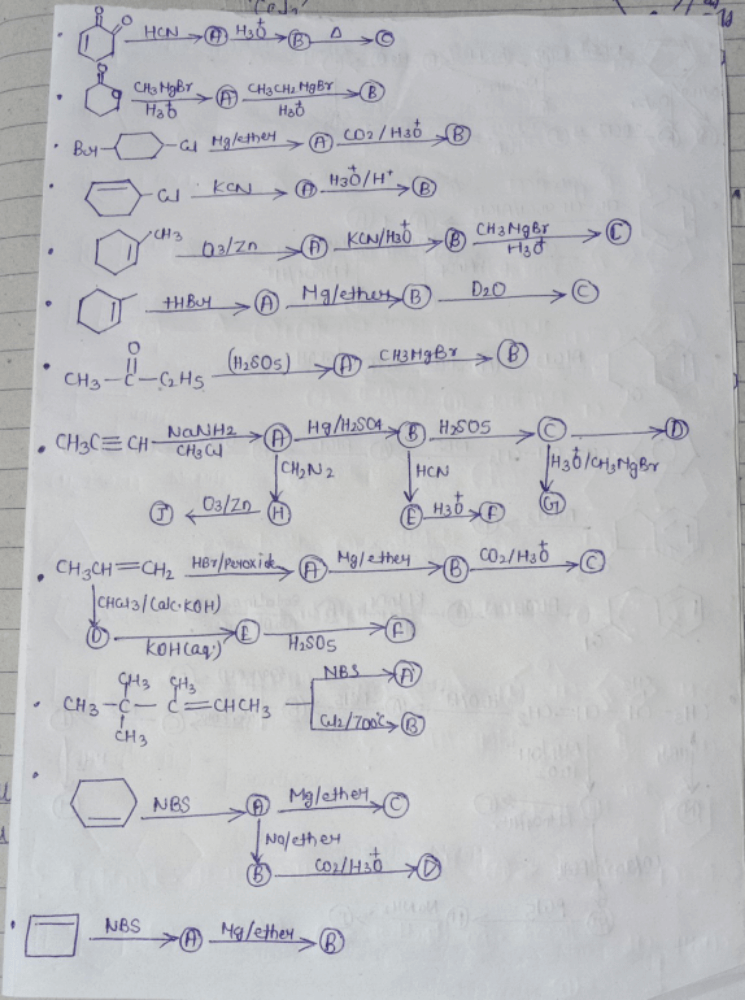 O O HCN → Ⓐ H3O+ → Ⓑ Δ → Ⓒ
O O CH3MgBr / H3O+ → Ⓐ CH3CH2MgBr / H3O+ → Ⓑ
Br– –Cl Mg/ether → Ⓐ CO2/H3O+ → Ⓑ
–Cl KCN → Ⓐ H3O+/H+ → Ⓑ
CH3 O3/Zn → Ⓐ KCN/H3O+ → Ⓑ CH3MgBr / H3O+ → Ⓒ
+HBr → Ⓐ Mg/ether → Ⓑ D2O → Ⓒ
O
CH3–C–C2H5 (H2SO5) → Ⓐ CH3MgBr → Ⓑ
CH3C≡CH NaNH2 / CH3Cl → Ⓐ Hg/H2SO4 → Ⓑ H2SO5 → Ⓒ → Ⓓ
CH2N2 HCN H3O+/CH3MgBr
Ⓘ ← O3/Zn Ⓗ Ⓔ H3O+ → Ⓕ Ⓖ
CH3CH=CH2 HBr/Peroxide → Ⓐ Mg/ether → Ⓑ CO2/H3O+ → Ⓒ
CHCl3/(alc.KOH)
Ⓓ KOH(aq.) → Ⓔ H2SO5 → Ⓕ
CH3 CH3 NBS → Ⓐ
CH3–C–C=CHCH3
CH3 Cl2/700°C → Ⓑ
NBS → Ⓐ Mg/ether → Ⓒ
Na/ether
Ⓑ CO2/H3O+ → Ⓓ
NBS → Ⓐ Mg/ether → Ⓑ